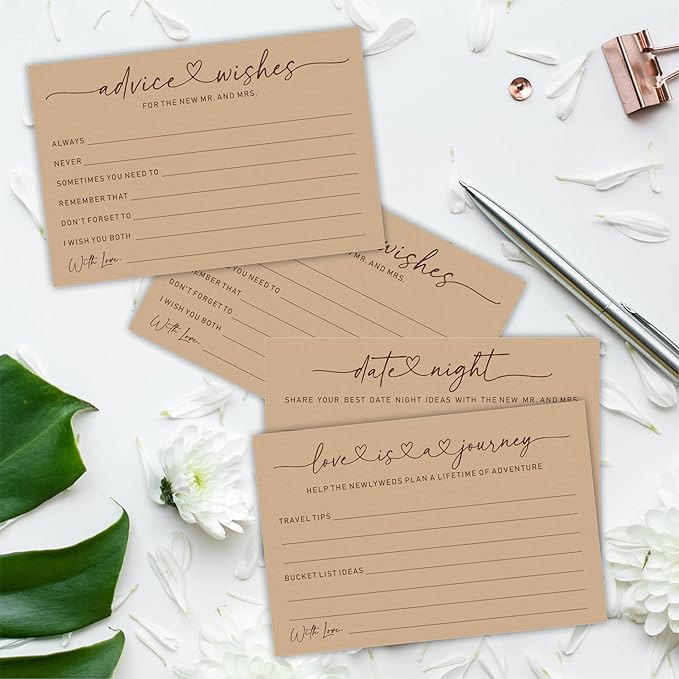 advice wishes
FOR THE NEW MR. AND MRS.
ALWAYS
NEVER
SOMETIMES YOU NEED TO
REMEMBER THAT
DON'T FORGET TO
I WISH YOU BOTH
With Love,
wishes
MR. AND MRS.
YOU NEED TO
REMEMBER THAT
DON'T FORGET TO
I WISH YOU BOTH
With Love,
date night
SHARE YOUR BEST DATE NIGHT IDEAS WITH THE NEW MR. AND MRS.
love is a journey
HELP THE NEWLYWEDS PLAN A LIFETIME OF ADVENTURE
TRAVEL TIPS
BUCKET LIST IDEAS
With Love,